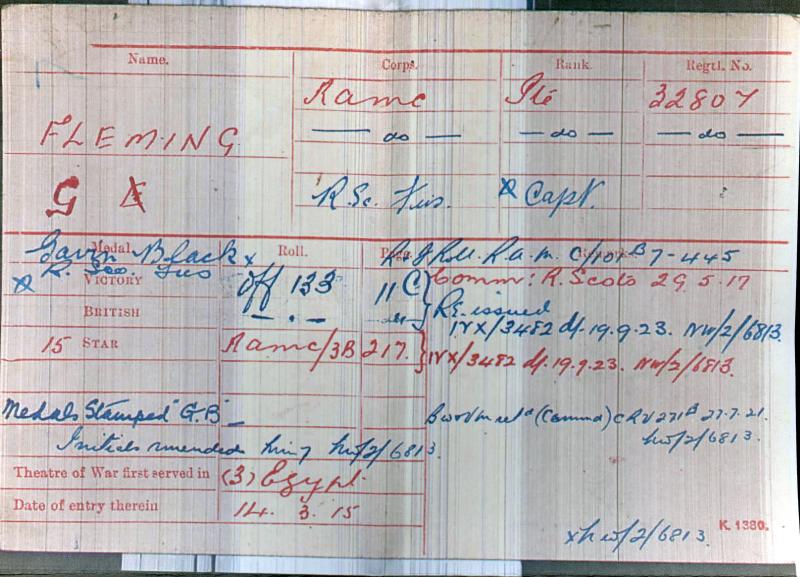 Name. Corps. Rank. Regtl. No.
FLEMING RAMC Pte 32807
— do — — do — — do —
G R. Sc. Fus. x Capt.
Gavin Black x
Medal. Roll. Page.
x R. Sco. Fus
VICTORY Off 133 11 C Comm: R. Scots 29.5.17
BRITISH — " — — do — Re-issued
IVX/3482 d/. 19.9.23. NW/2/6813.
15 STAR RAMC/3B 217. IVX/3482 d/. 19.9.23. NW/2/6813.
Medals Stamped "G.B" —
27.7.21.
Initials amended NW/2/6813. NW/2/6813.
Theatre of War first served in (3) Egypt.
Date of entry therein 14. 3. 15
K. 1380.
x NW/2/6813.